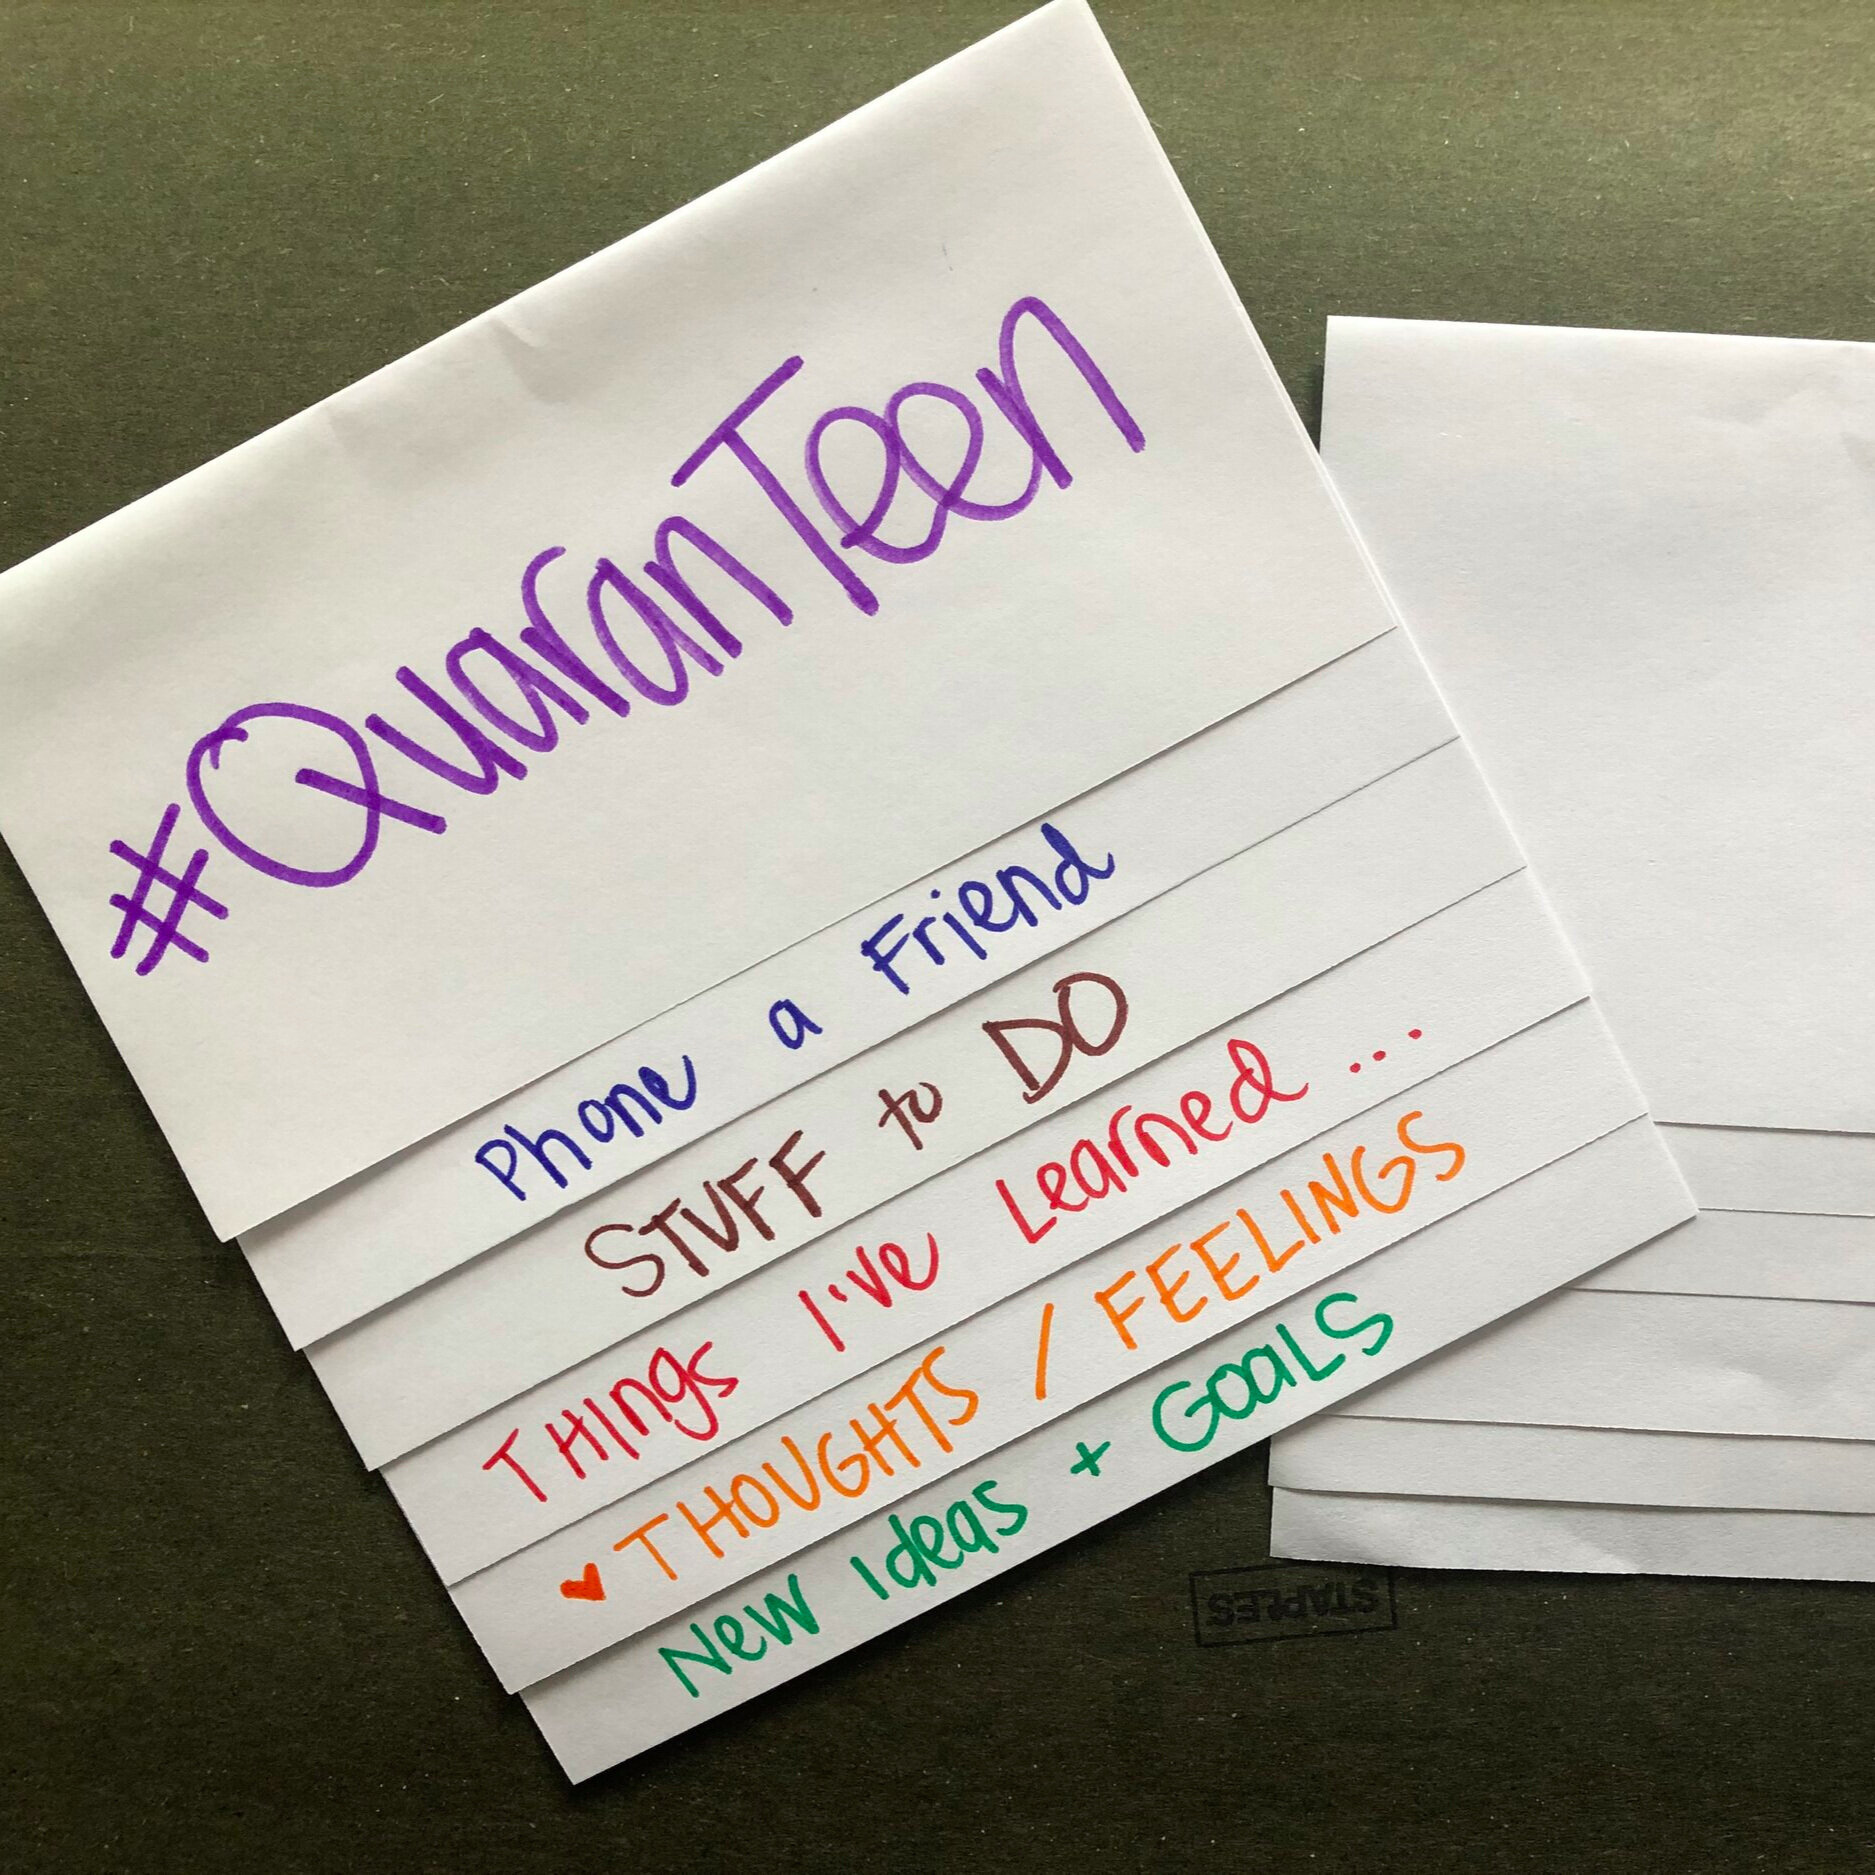 #QuaranTeen
Phone a Friend
STUFF to DO
THings I've Learned ...
♥ THOUGHTS / FEELINGS
New Ideas + GOALS
STAPLES